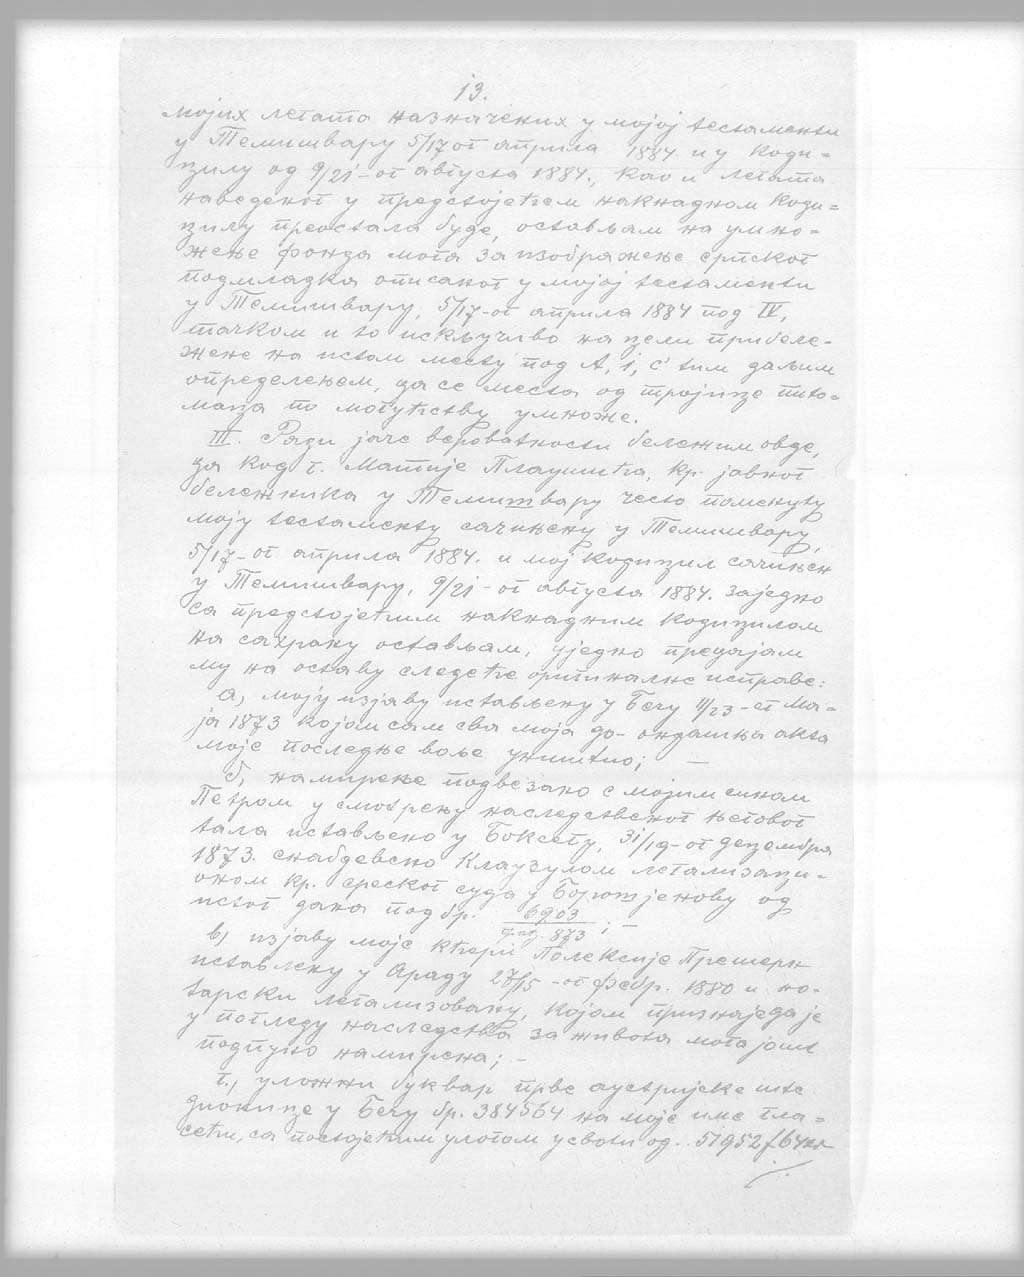 13.
мојих легата назначених у мојој тестаменти
у Темишвару 5/17 ог априла 1884. и у коди=
цилу од 9/21-ог августа 1884., као и легата
наведеног у предстојећем накнадном коди=
цилу преостала буде, остављам на умно=
жење фонда мога за изображење српског
подмладка описаног у мојој тестаменти
у Темишвару, 5/17-ог априла 1884 под IV,
тачком и то искључиво на цели прибеле-
жене на истом месту под А, 1, с' тим даљим
определењем, да се места од тројице пито=
маца по могућству умноже.
III. Ради јаче вероватности бележим овде,
да код г. Матије Плаушића, кр. јавног
бележника у Темишвару често поменуту
моју тестаменту сачињену у Темишвару,
5/17-ог априла 1884. и мој кодицил сачињен
у Темишвару, 9/21-ог августа 1884. заједно
са предстојећим накнадним кодицилом
на сахрану остављам, уједно предајам
му на оставу следеће оригиналне исправе:
а, моју изјаву истављену у Бечу 11/23-ег ма=
ја 1873 којом сам сва моја до-ондашња акта
моје последње воље уништио; —
б, намирење подвезано с мојим сином
Петром у смотрењу наследственог његовог
тала истављено у Боксегу, 31/19-ог децембра
1873. снабдевено клаузулом легализаци-
оном кр. среског суда у Борошјенову од
истог дана под бр. 6903/грађ. 873; —
в) изјаву моје кћери Полексије Прешерн
истављену у Араду 27/15-ог фебр. 1880 и но-
тарски легализовану, којом признаје да је
у погледу наследства за живота мога јошт
подпуно намирена; -
г., уложни буквар прве аустријске ште
дионице у Бечу бр. 384564 на моје име гла=
сећи, са постојећим улогом у своти од .. 51952 f 64 кр